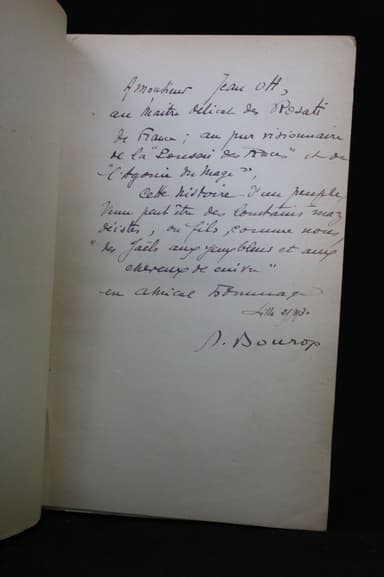 A monsieur Jean Ott,
au Maître délicat des Rosati
de France ; au pur visionnaire
de la " des " et de
"l'Agonie du Mage",
Cette histoire d'un peuple
venu peut être des lointains maz
déistes, ou fils, comme nous,
"des Gaëls aux yeux bleus et aux
cheveux de cuivre"
en amical hommage
Lille